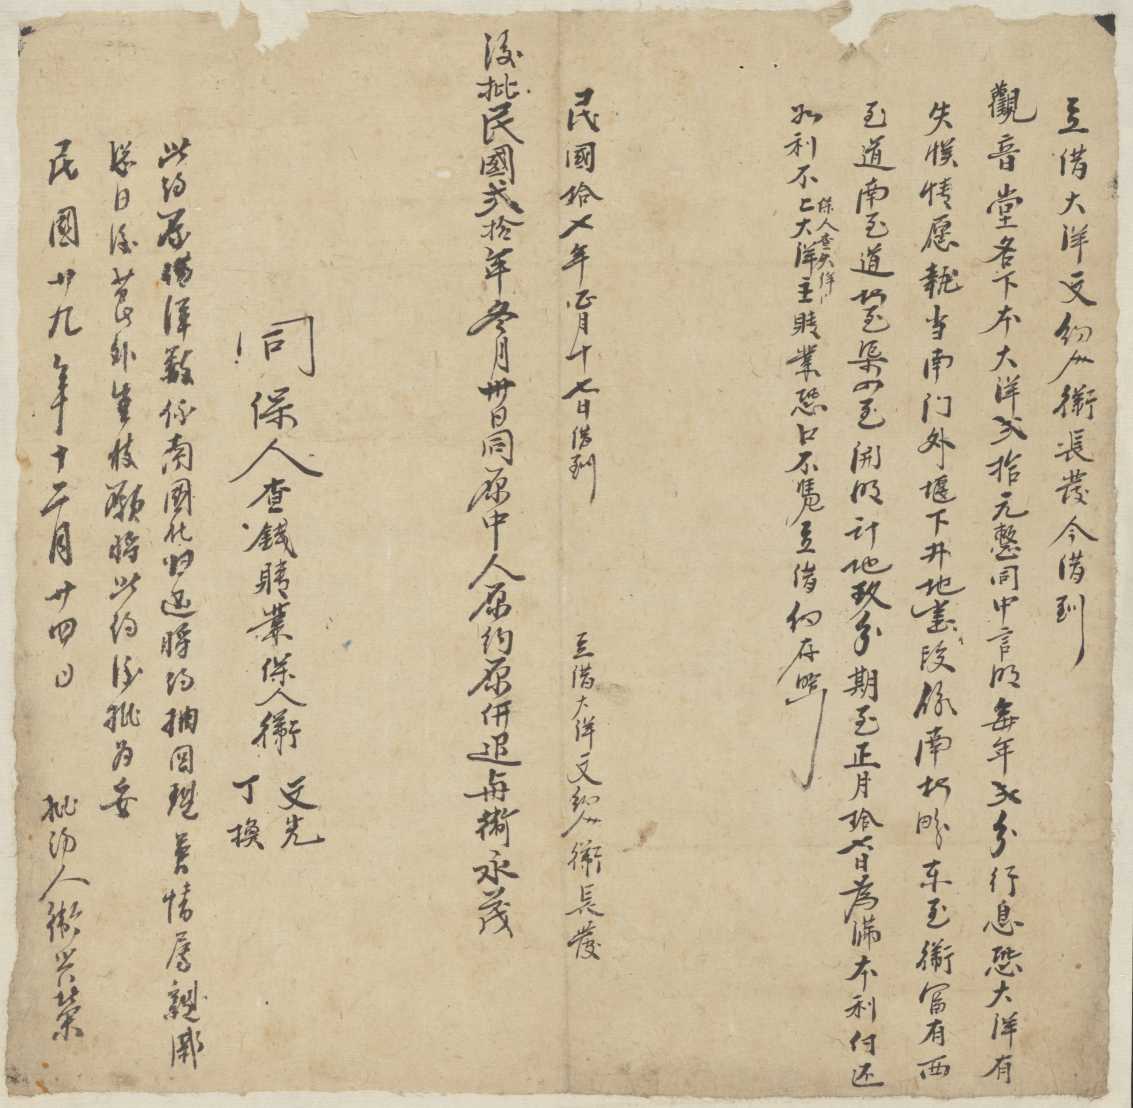 立借大洋文約人衛長發今借到
觀音堂名下本大洋弍拾元整同中言明每年弍分行息恐大洋有
失悞情愿執当南门外堰下井地壹段係南北畛東至衛富有西
至道南至道北至渠四至開明計地玖分期至正月拾七日為滿本利付还
如利不上大洋主賍業恐口不憑立借約存照
保人查大洋
民國拾七年正月十七日借到
立借大洋文約人衛長發
後批民國弍拾年冬月卅日同原中人原約原併退與衛永茂
同保人查錢賍業保人衛
文光
丁換
此約原借洋数係南國化归还将約抽回理善情屬親衛
恐日後莨外生枝願将此約後批为妥
民國廿九年十二月廿四日
批约人衛兴荣